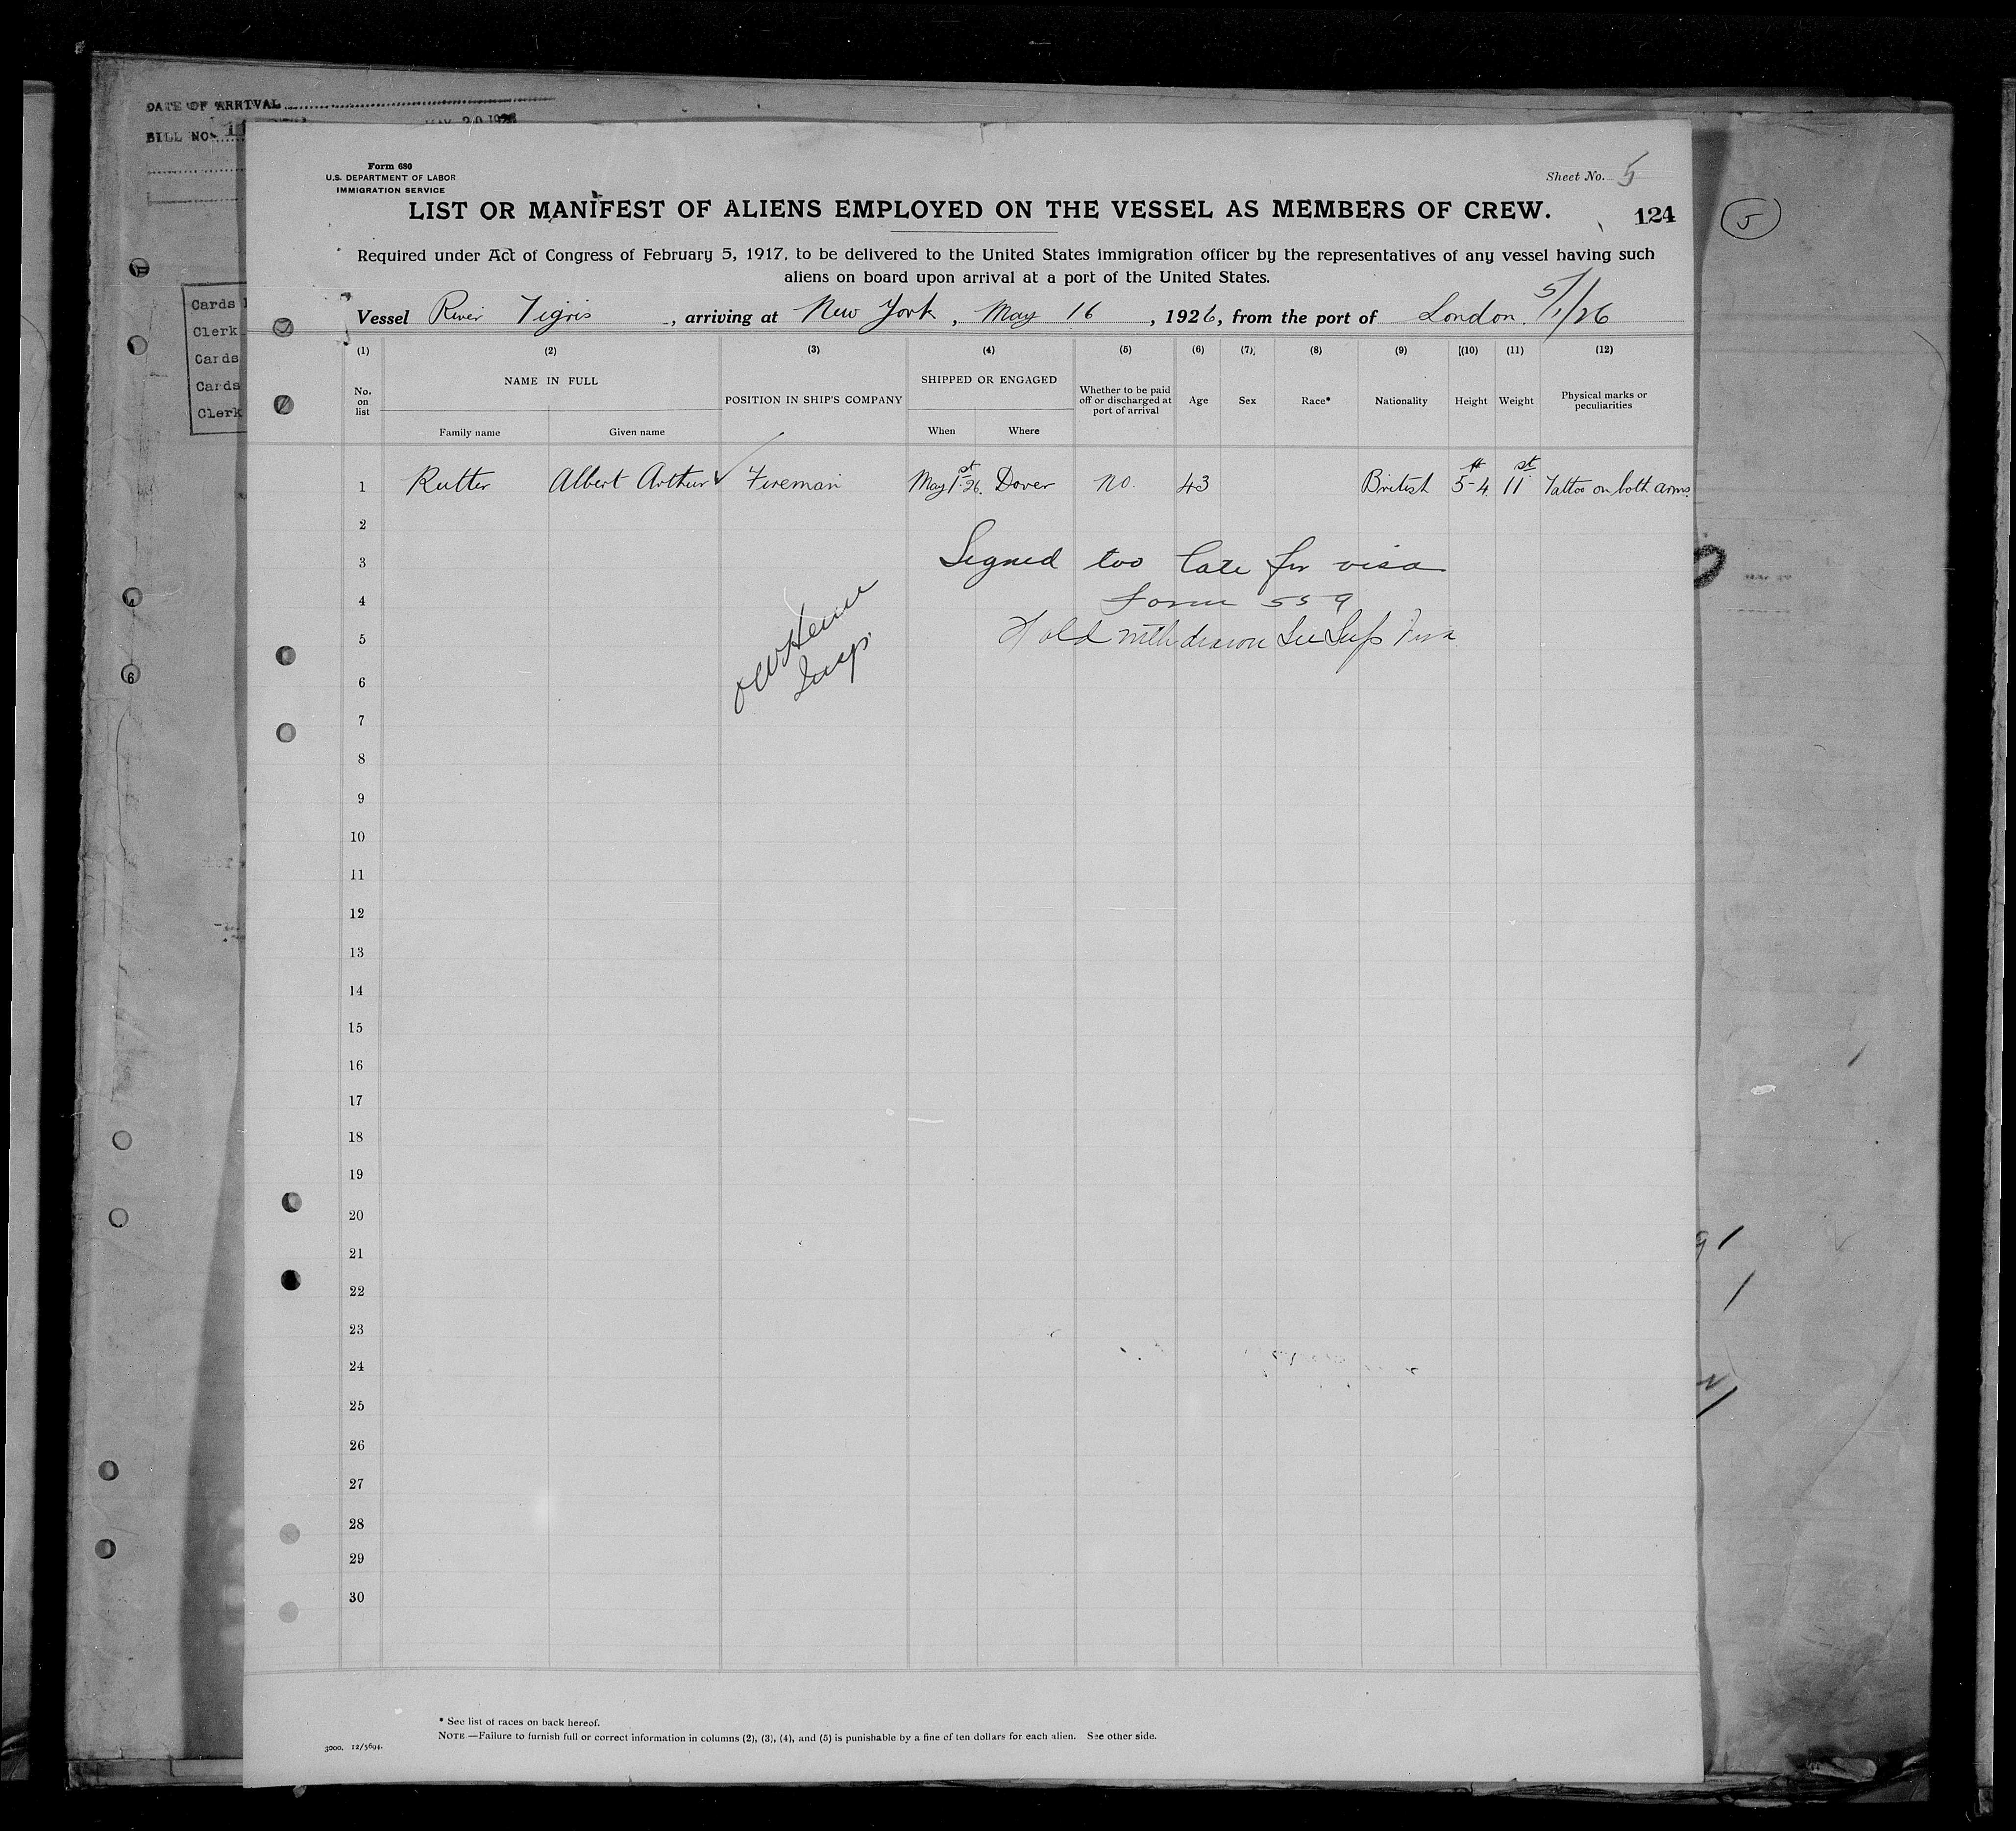 DATE OF ARRIVAL
BILL NO.
MAY 20 1926
Cards
Clerk
Cards
Cards
Clerk
Form 680
U.S. DEPARTMENT OF LABOR
IMMIGRATION SERVICE
Sheet No. 5
LIST OR MANIFEST OF ALIENS EMPLOYED ON THE VESSEL AS MEMBERS OF CREW.
124
5
Required under Act of Congress of February 5, 1917, to be delivered to the United States immigration officer by the representatives of any vessel having such
aliens on board upon arrival at a port of the United States.
Vessel River Tigris, arriving at New York, May 16, 1926, from the port of London. 5/1/26
(1) (2) (3) (4) (5) (6) (7) (8) (9) (10) (11) (12)
No. on list
NAME IN FULL
Family name Given name
POSITION IN SHIP'S COMPANY
SHIPPED OR ENGAGED
When Where
Whether to be paid off or discharged at port of arrival
Age Sex Race* Nationality Height Weight
Physical marks or peculiarities
1 Rutter Albert Arthur ✓ Fireman May 1st 26. Dover no. 43 British 5ft-4 11st Tattoo on both arms.
2
3 Signed too late for visa
4 Form 559
5 Hold withdrawn See Insp
Insp.
6
7
8
9
10
11
12
13
14
15
16
17
18
19
20
21
22
23
24
25
26
27
28
29
30
* See list of races on back hereof.
NOTE.—Failure to furnish full or correct information in columns (2), (3), (4), and (5) is punishable by a fine of ten dollars for each alien. See other side.
3000. 12/5694.